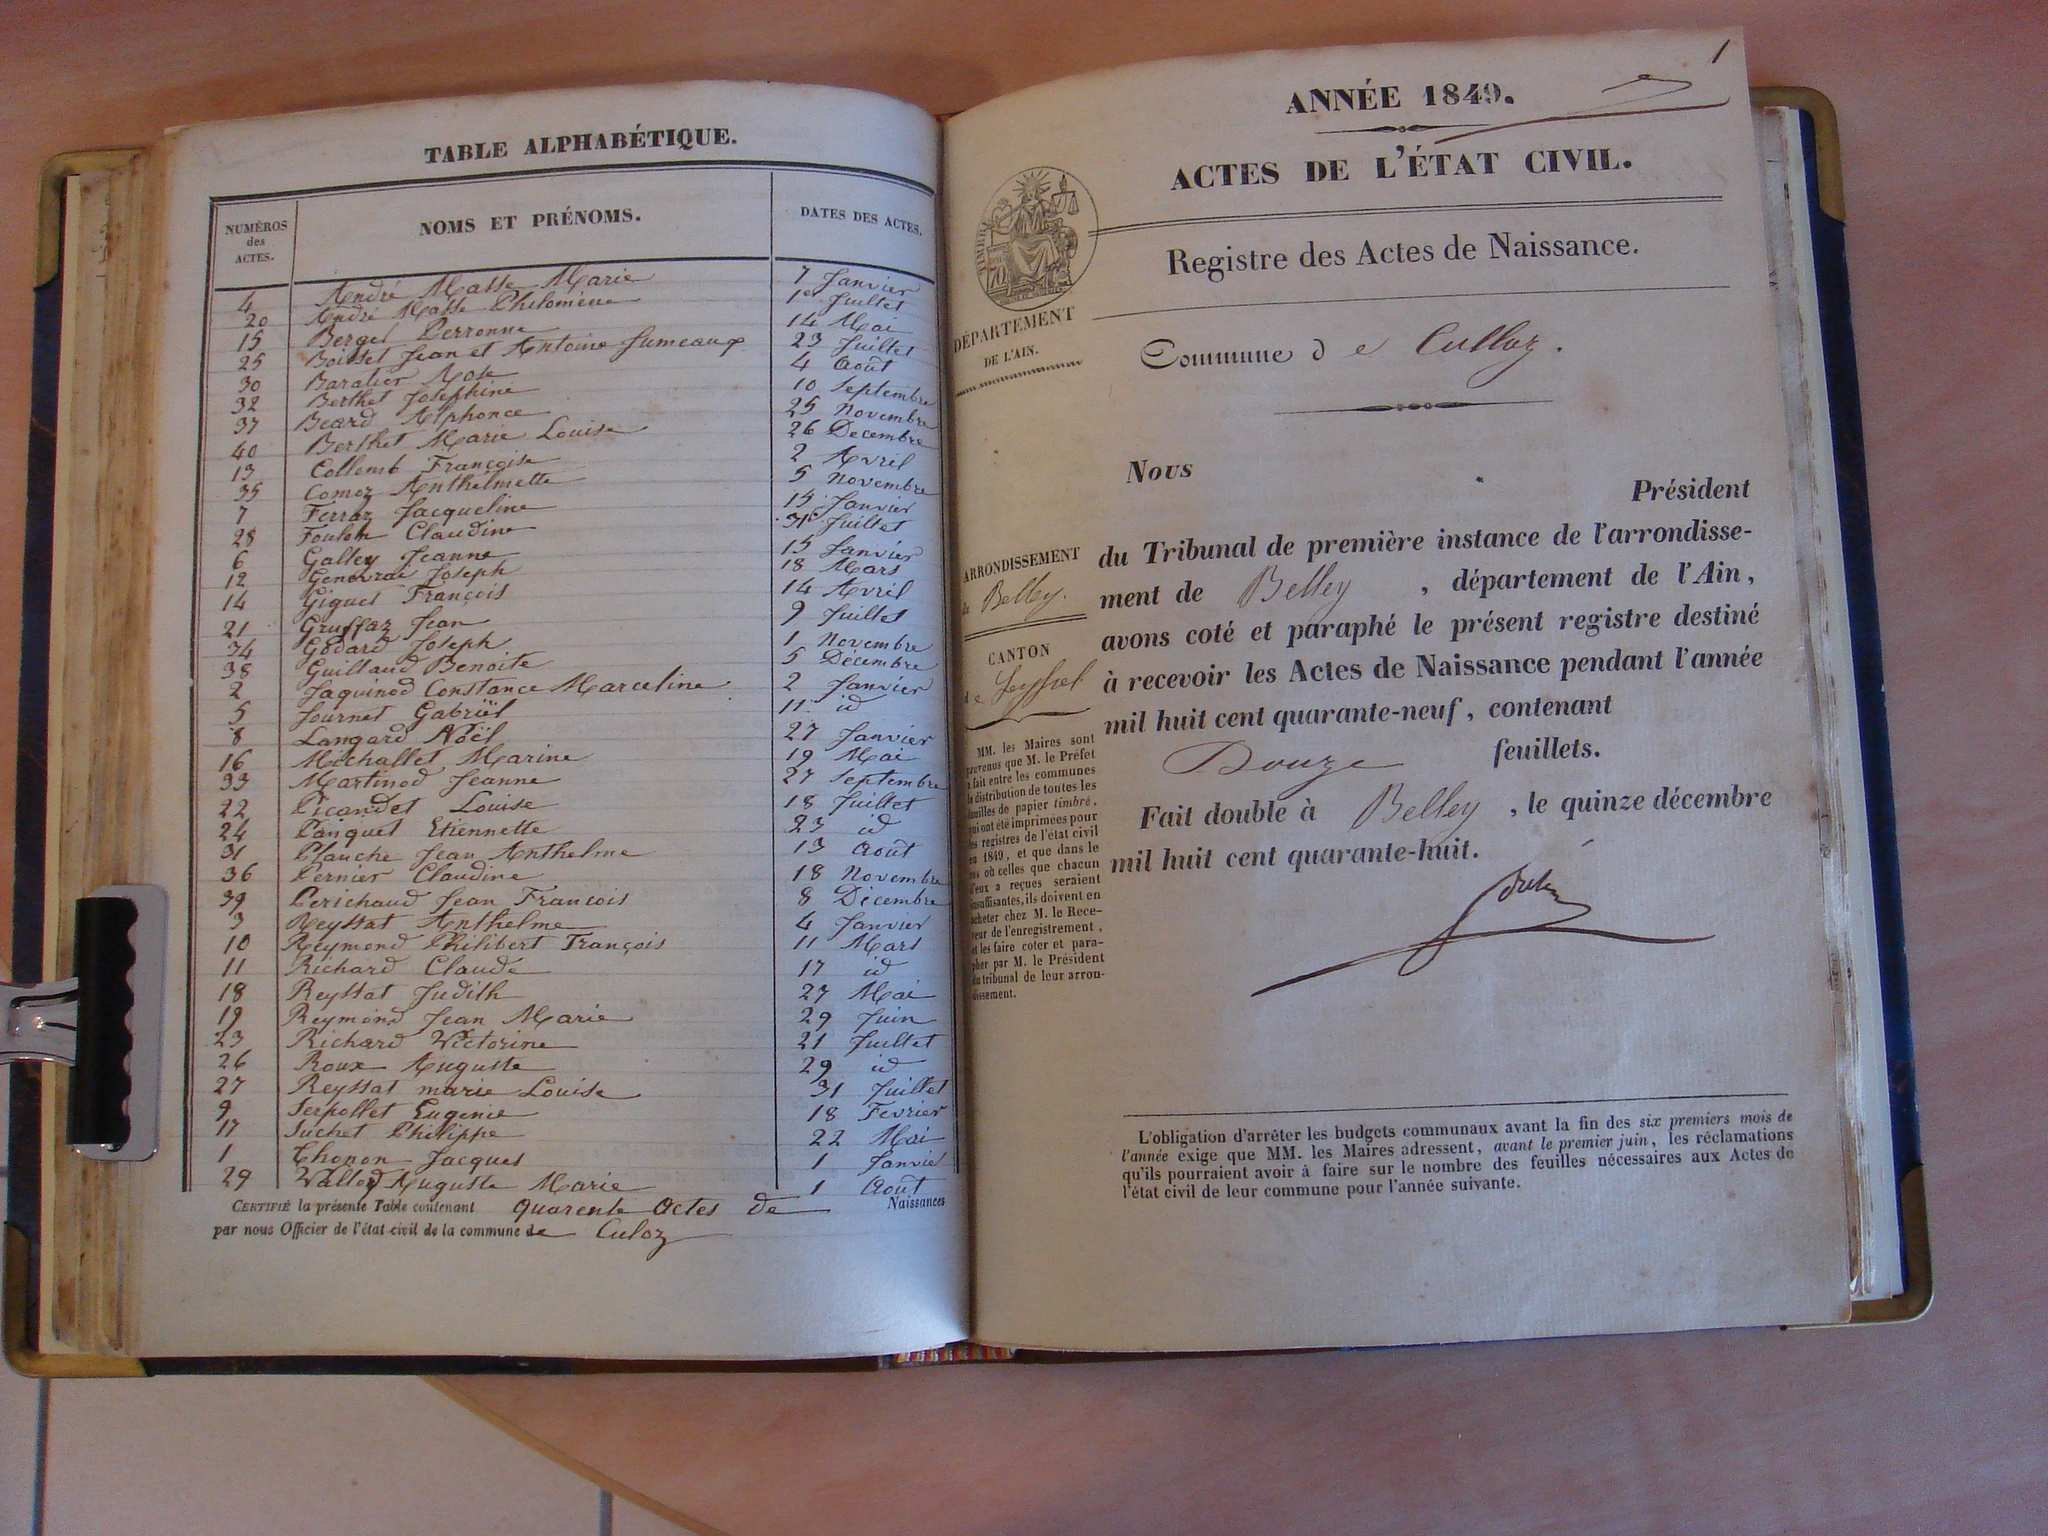 TABLE ALPHABÉTIQUE.
NUMÉROS des ACTES. NOMS ET PRÉNOMS. DATES DES ACTES.
4 André Masse Marie 7 Janvier
20 André Masse Philomène 1er Juillet
15 Berget Perronne 14 Mai
25 Boisset Jean et Antoine Jumeaux 23 Juillet
30 Baratier Rose 4 Août
32 Berthet Josephine 10 Septembre
37 Beard Alphonce 25 Novembre
40 Berthet Marie Louise 26 Decembre
13 Collomb Françoise 2 Avril
35 Comoz Anthelmette 5 Novembre
7 Ferraz Jacqueline 15 Janvier
28 Foulon Claudine 31 Juillet
6 Galley Jeanne 15 Janvier
12 Genevrai Joseph 18 Mars
14 Giguet François 14 Avril
21 Gruffaz Jean 9 Juillet
34 Godard Joseph 1 Novembre
38 Guillaud Benoite 5 Décembre
2 Jaquinod Constance Marceline 2 Janvier
5 Journet Gabriël 11 id
8 Langard Noël 27 Janvier
16 Michallet Marine 19 Mai
33 Martinod Jeanne 27 Septembre
22 Picandet Louise 18 Juillet
24 Panquet Etiennette 23 id
31 Planche Jean Anthelme 13 Août
36 Pernier Claudine 18 Novembre
39 Perichaud Jean François 8 Décembre
3 Reyssat Anthelme 4 Janvier
10 Reymond Philibert François 11 Mars
11 Richard Claude 17 id
18 Reyssat Judith 27 Mai
19 Reymond Jean Marie 29 Juin
23 Richard Victorine 21 Juillet
26 Roux Auguste 29 id
27 Reyssat marie Louise 31 Juillet
9 Serpollet Eugenie 18 Fevrier
17 Suchet Philippe 22 Mai
1 Thonon Jacques 1 Janvier
29 Vallod Auguste Marie 1 Août
CERTIFIÉ la présente Table contenant quarente Actes de Naissances
par nous Officier de l'état-civil de la commune de Culoz
1
ANNÉE 1849.
ACTES DE L'ÉTAT CIVIL.
Registre des Actes de Naissance.
TIMBRE
70
DÉPARTEMENT
DE L'AIN.
Commune de Culloz.
ARRONDISSEMENT
de Belley.
CANTON
de Seyssel
MM. les Maires sont
prévenus que M. le Préfet
a fait entre les communes
la distribution de toutes les
feuilles de papier timbré,
qui ont été imprimées pour
les registres de l'état civil
en 1849, et que dans le
cas où celles que chacun
d'eux a reçues seraient
insuffisantes, ils doivent en
acheter chez M. le Rece-
veur de l'enregistrement,
et les faire coter et para-
pher par M. le Président
du tribunal de leur arron-
dissement.
Nous Président
du Tribunal de première instance de l'arrondisse-
ment de Belley, département de l'Ain,
avons coté et paraphé le présent registre destiné
à recevoir les Actes de Naissance pendant l'année
mil huit cent quarante-neuf, contenant
Douze feuillets.
Fait double à Belley, le quinze décembre
mil huit cent quarante-huit.
L'obligation d'arrêter les budgets communaux avant la fin des six premiers mois de
l'année exige que MM. les Maires adressent, avant le premier juin, les réclamations
qu'ils pourraient avoir à faire sur le nombre des feuilles nécessaires aux Actes de
l'état civil de leur commune pour l'année suivante.